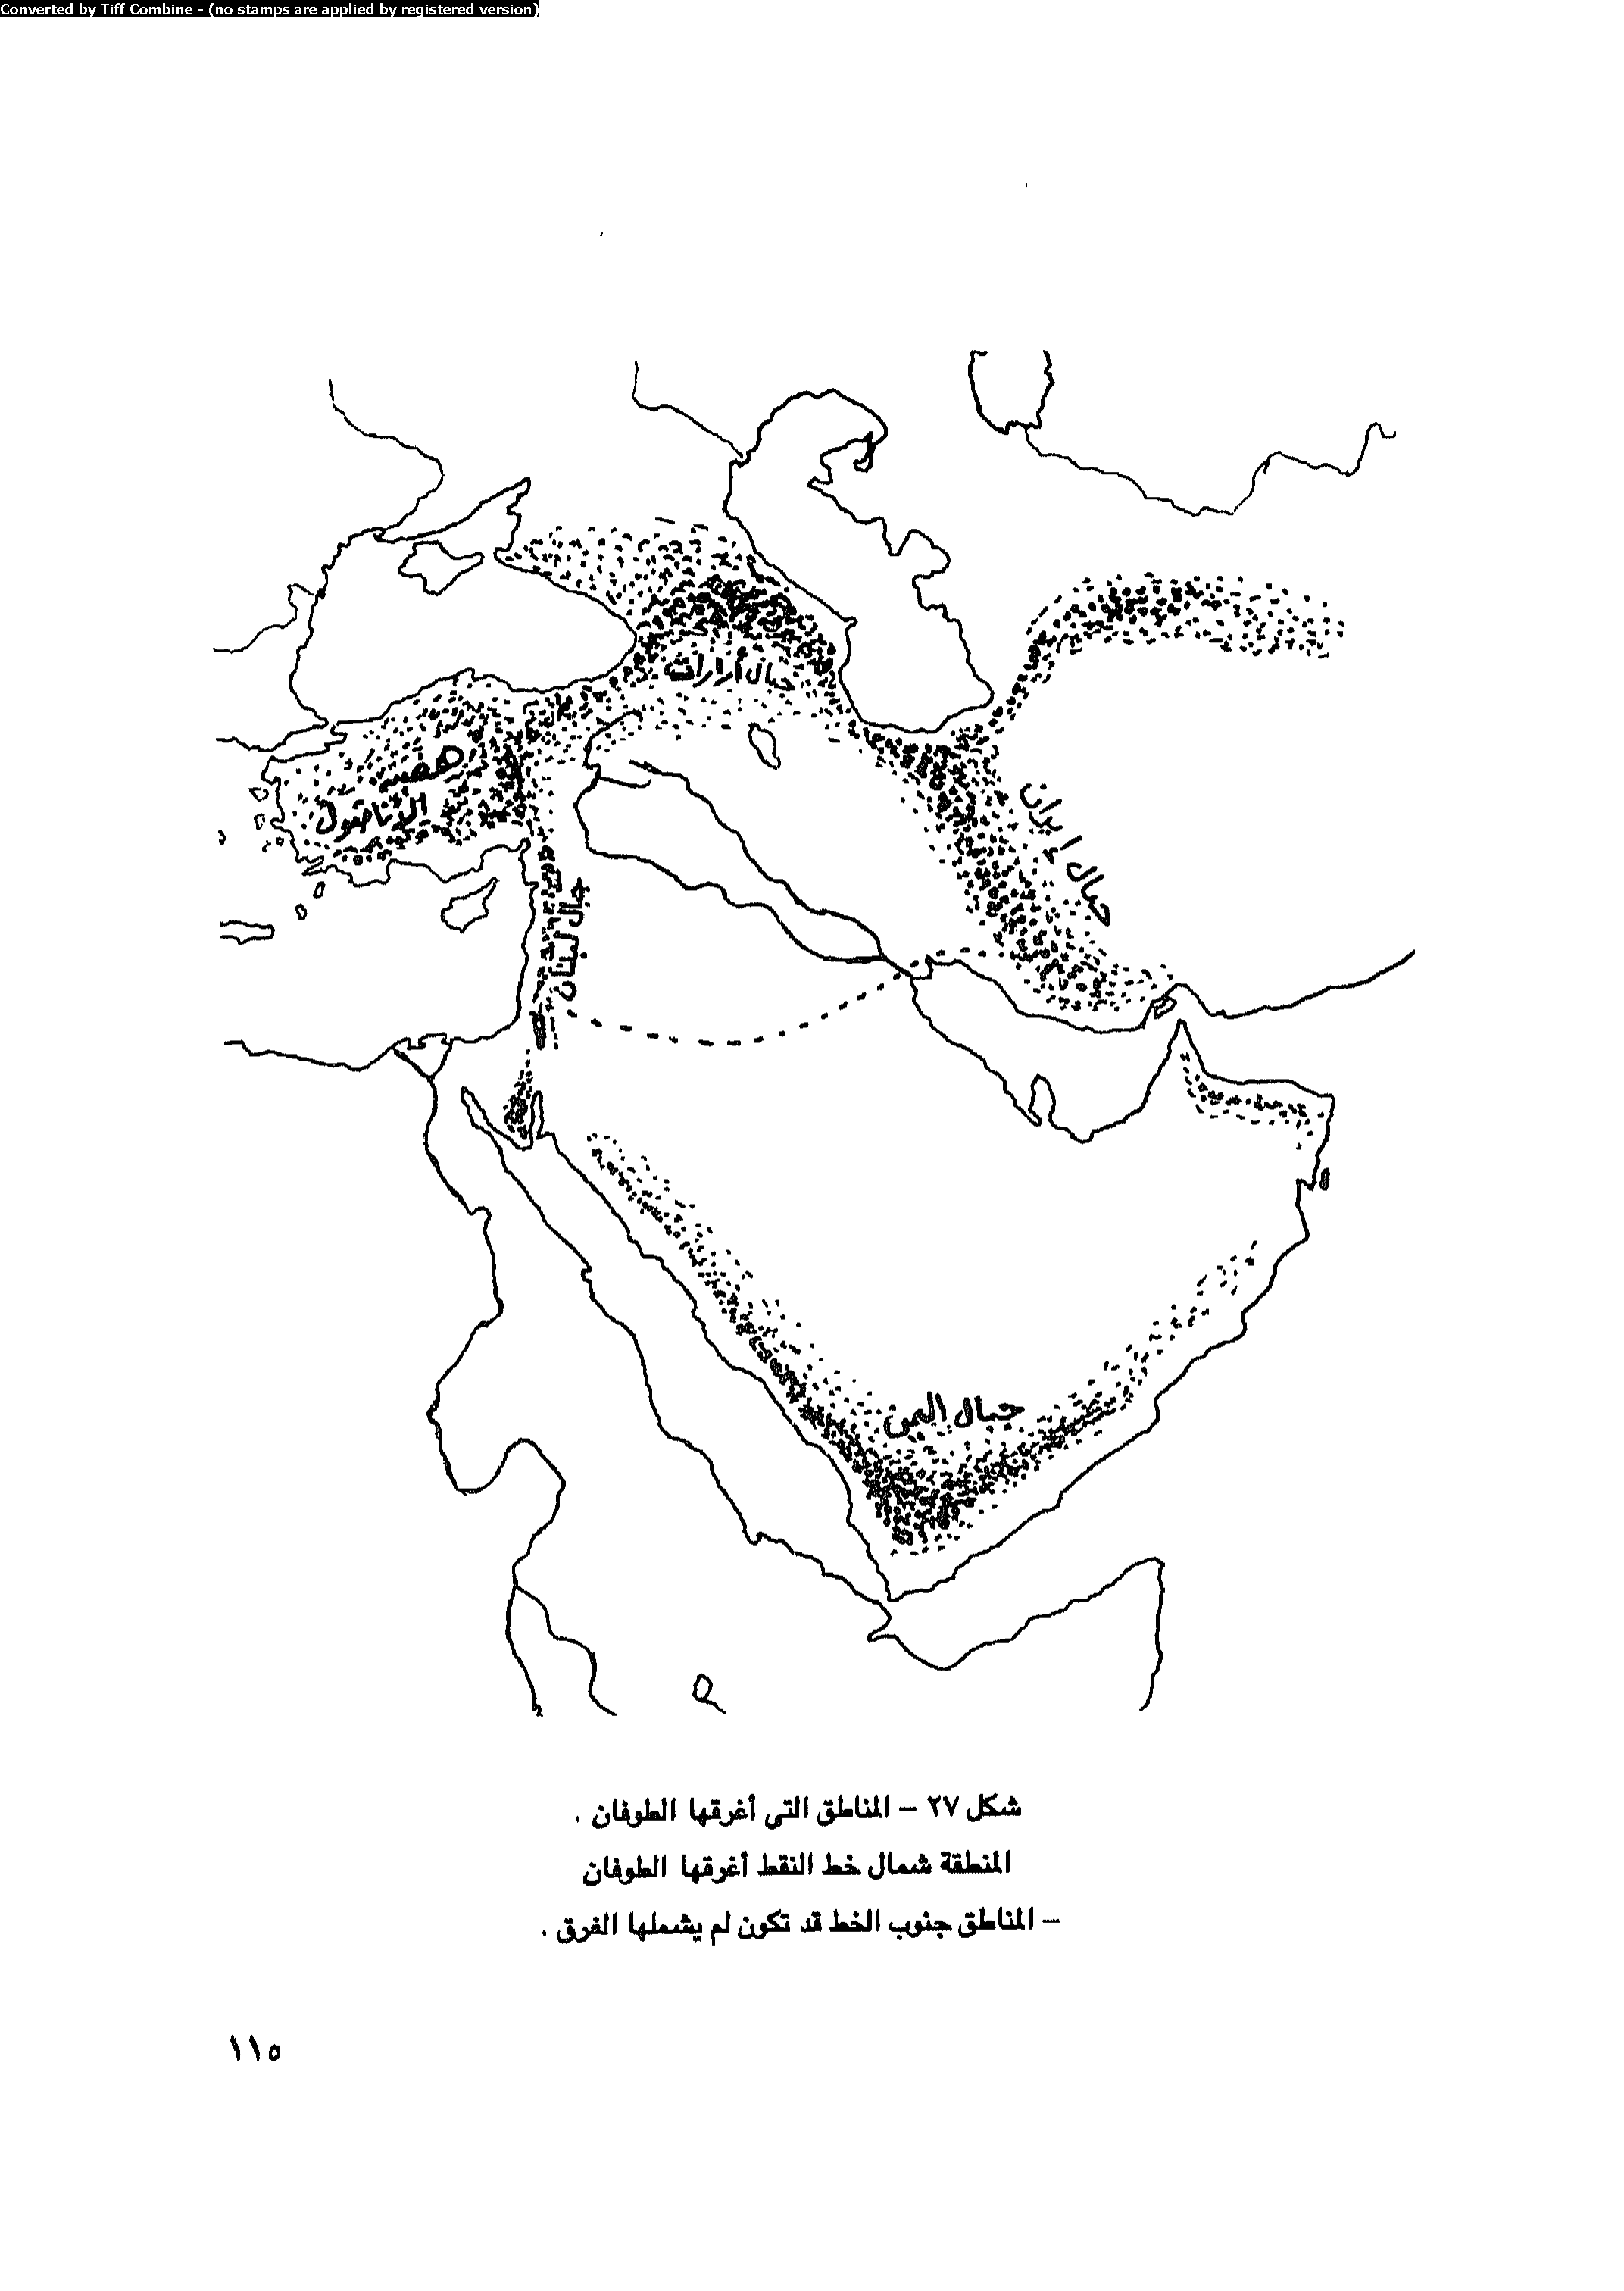 Converted by Tiff Combine - (no stamps are applied by registered version)
جبال أرارات
هضبة
الأناضول
جبال ايران
جبال لبنان
جبال اليمن
شكل ٢٧ – المناطق التى أغرقها الطوفان .
المنطقة شمال خط النقط أغرقها الطوفان
– المناطق جنوب الخط قد تكون لم يشملها الغرق .
١١٥